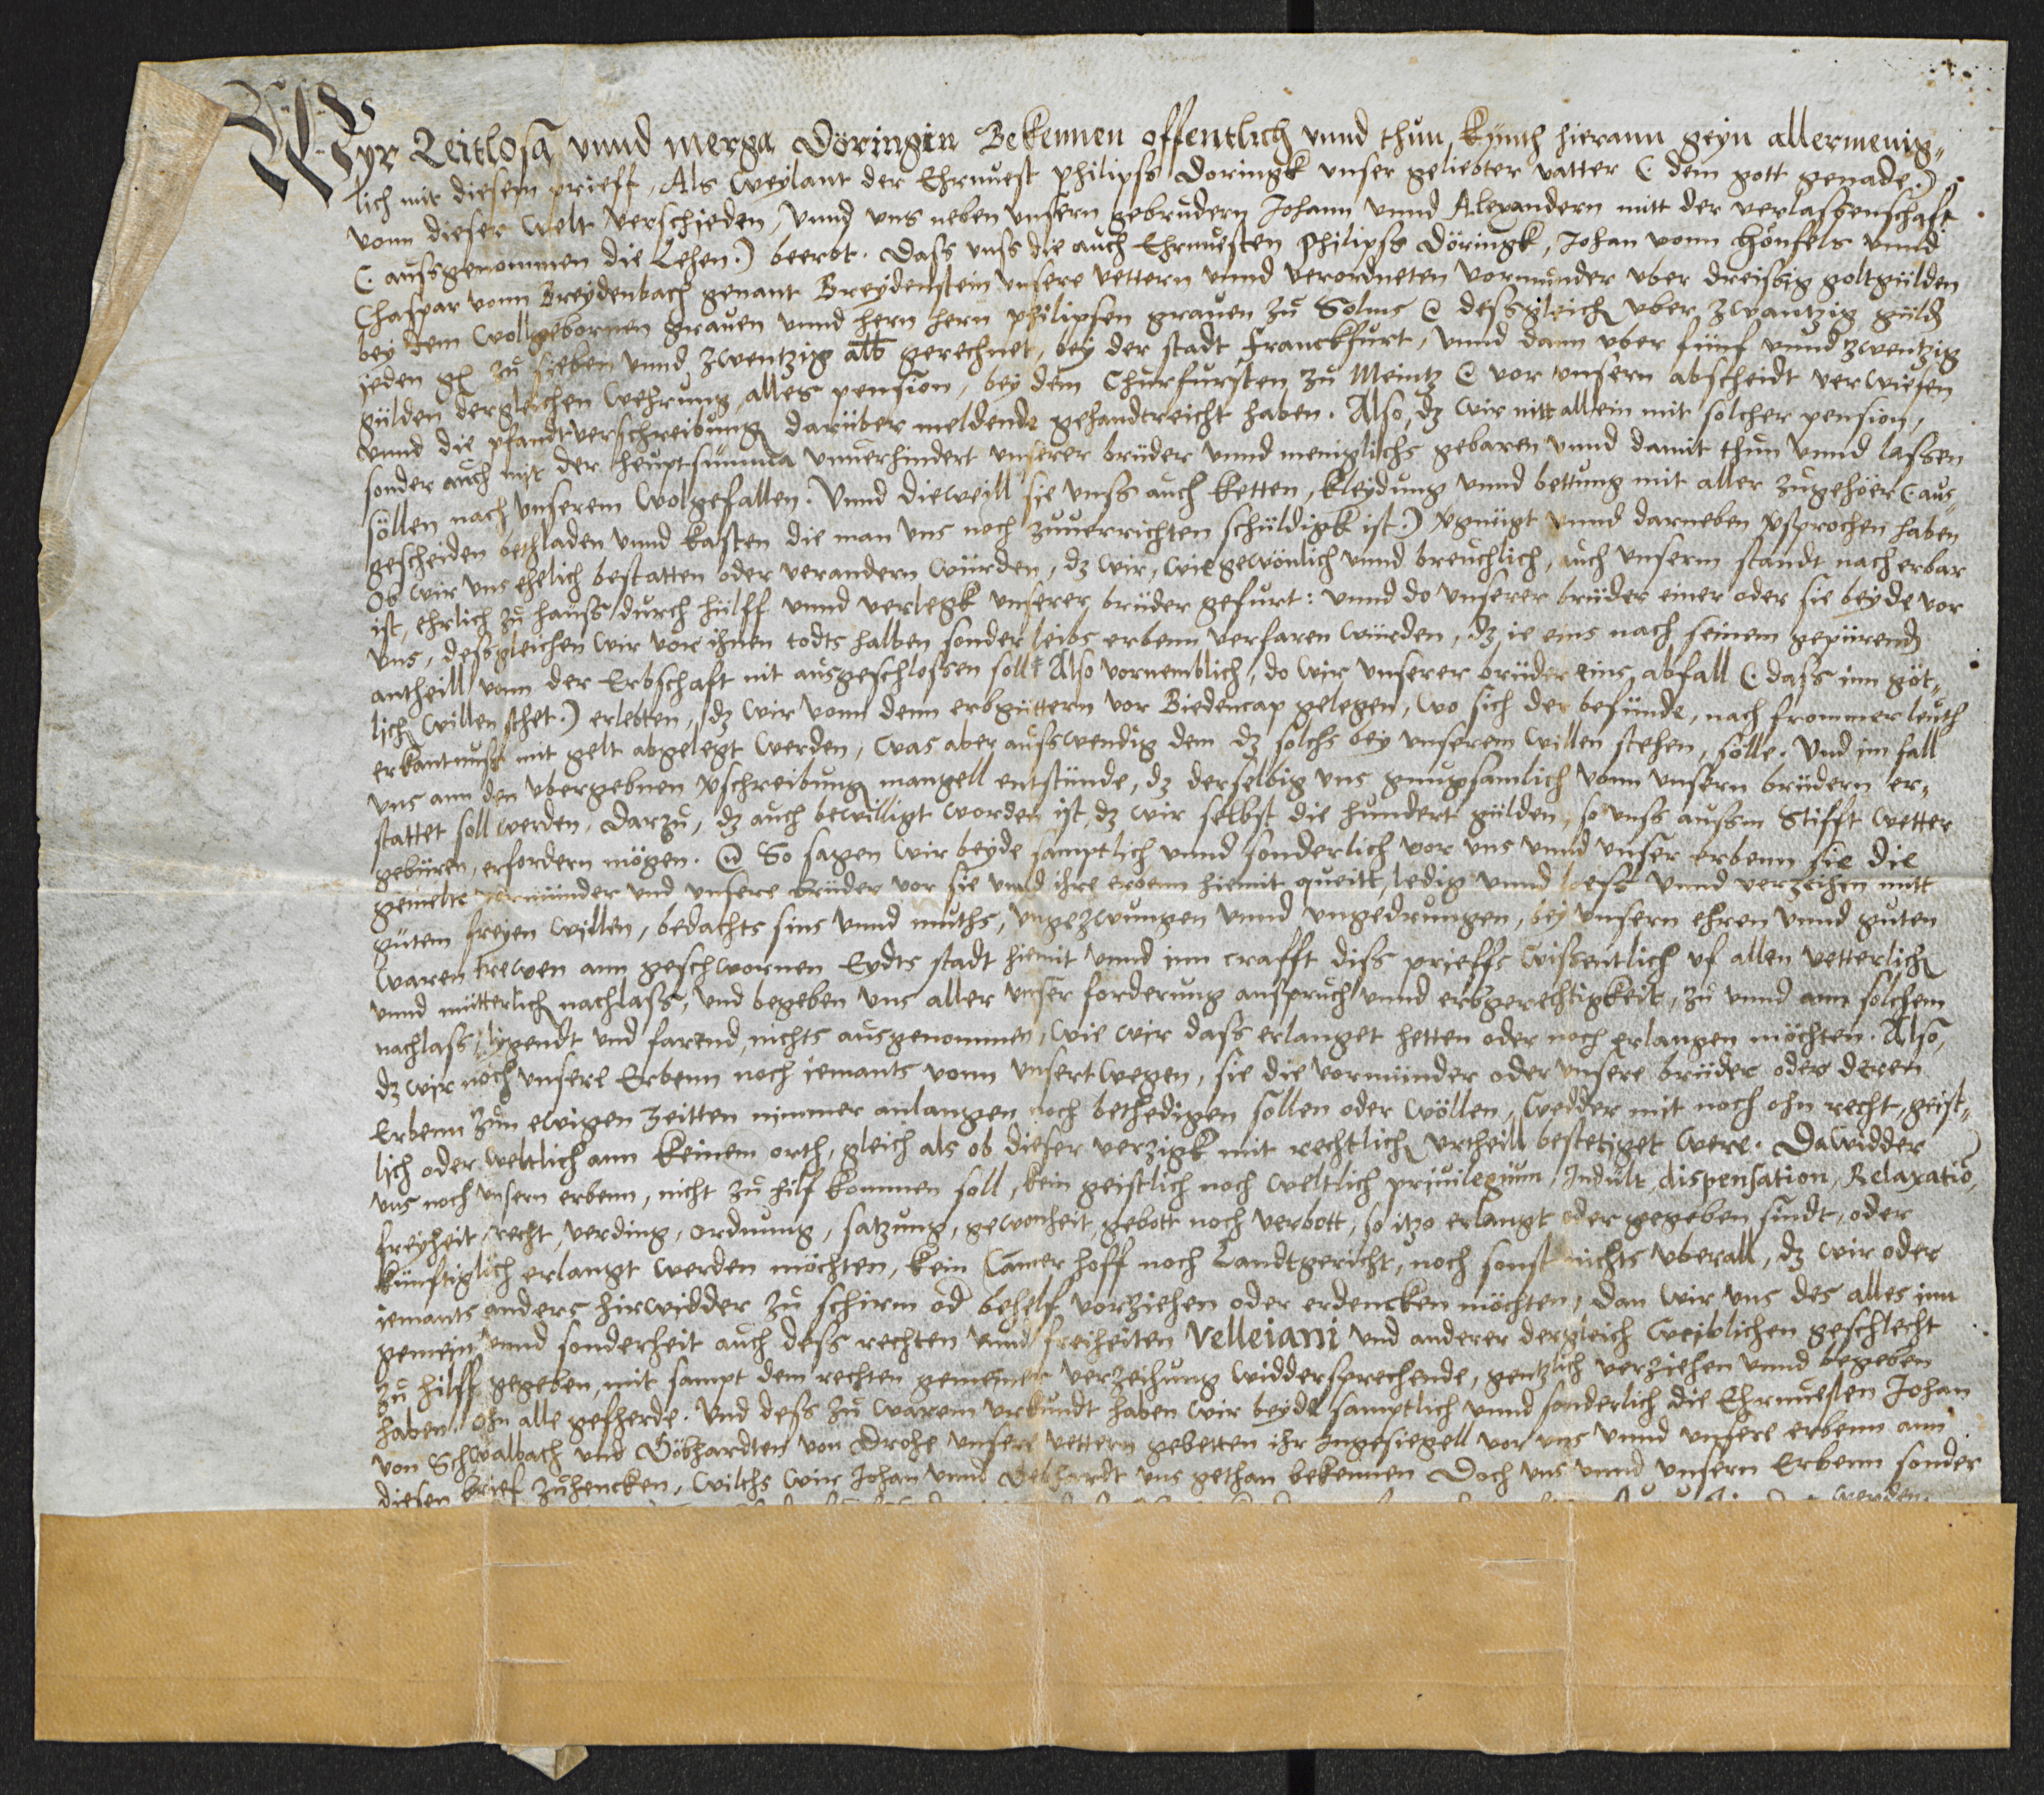 Wyr Zeitlosa vnnd Merga Döringin Bekennen offentlich vnnd thun kynth hierann geyn allermenig„
lich mit diesem prieff, Als weylant der Ehrnuest philipss Doringk vnser geliebter vatter (. dem gott genade.)
vonn dieser welt verschieden, vnnd vns neben vnsern gebrudern Johann vnnd Alexandern mitt der verlassenschaft
(. aussgenommen die Lehen.) beerbt. Dass vnss die auch Ehrnuesten Philipss Döringk, Johan vonn Honfels vnnd
Chaspar vonn Breydenbach genant Breydenstein vnsere vettern vnnd verordneten vormunder vber dreissig goltgülden
bey dem wollgebornen grauen vnnd hern hern philipsen grauen zu Solms @ dessgleich vber zwantzig güld
jeden gl zu sieben vnnd zwentzig alb gerechnet, bey der stadt Franckfurt, vnnd dann vber fünf vnnd zwentzig
gülden dergleichen wehrung, alles pension, bey dem Churfursten zu Meintz @ vor vnsern abscheidt verwiesen
vnnd die pfandtverschreibung darüber meldende gehandtreicht haben. Also, dz wir nitt allein mit solcher pension,
sonder auch mit der heuptsumma vnuerhindert vnserer brüder vnnd meniglichs gebaren vnnd damit thun vnnd lassen
söllen nach vnserem wolgefallen. Vnnd dieweill sie vnss auch ketten, kleydung vnnd bettung mit aller zugehöer (. aus„
gescheiden bethladen vnnd kasten die man vns noch zuuerrichten schüldigk ist.) vgnügt vnnd darneben vsprochen haben
Ob wir vns ehelich bestatten oder verandern würden, dz wir, wie gewönlich vnnd breuchlich, auch vnserm standt nach erbar
ist, ehrlich zu hauss durch hülff vnnd verlegk vnserer brüder gefurt: vnnd do vnserer brüder einer oder sie beyde vor
vns, dessgleichen wir vor ihnen todts halben sonder leibs erbenn verfaren würden, dz ie eins nach seinem gepürend
antheill vonn der Erbschaft nit ausgeschlossen soll Also vornemblich, do wir vnserer brüder eins abfall (. dass inn göt„
lich willen sthet.) erlebten, dz wir vonn denn erbgüttern vor Biedencap gelegen, wo sich der befünde, nach frommer leuth
erkantnuss mit gelt abgelegt werden, was aber ausswendig dem dz solchs bey vnserem willen stehen, sölle. Vnd im fall
vns ann den vbergebnen vschreibung mangell entstünde, dz derselbig vns gnugsamlich vonn vnsern brüdern er„
stattet soll werden, darzu, dz auch bewilligt worden ist, dz wir selbst die hundert gülden, so vnss aussm Stifft Wetter
gebüren, erfordern mögen. @ So sagen wir beyde samptlich vnnd sonderlich vor vns vnnd vnser erbenn sie die
gemelte vormünder vnd vnsere brüder vor sie vnnd ihre erbenn hiemit queitt, ledig vnnd loess vnnd verzeihen mitt
gütem freyen willen, bedachts sins vnnd muths, vngezwungen vnnd vngedrungen, bey vnsern ehren vnnd guten
waren trewen ann geschwornen Eydts stadt hiemit vnnd inn crafft diss prieffs wissentlich vf allen vetterlich
vnnd mütterlich nachlass, vnd begeben vns aller vnser forderung anspruch vnnd erbgerechtigkeit, zu vnnd ann solchem
nachlass, ligendt vnd farend, nichts ausgenommen, wie wir dass erlanget hetten oder noch erlangen möchten. Also,
dz wir noch vnsere Erbenn noch iemants vonn vnsertwegen, sie die vormünder oder vnsere brüder oder deren
Erbenn zun ewigen zeitten nimmer anlangen noch bethedigen söllen oder wöllen, wedder mit noch ohn recht, geist„
lich oder weltlich ann keinem orth, gleich als ob dieser verzigk mit rechtlich vrtheill bestetiget were. Dawidder
vns noch vnsern erbenn, nicht zu hilf kommen soll, kein geistlich noch weltlich priuilegium, Indult, dispensation, Relaxatio,
freyheit, recht, verding, ordnung, satzung, gewonheit, gebott noch verbott, so itzo erlangt oder gegeben sindt, oder
künftiglich erlangt werden möchten, kein Camerhoff noch Landtgericht, noch sonst nichts vberall, dz wir oder
iemants anders hirwidder zu schirm od behelf vorziehen oder erdencken möchten, dan wir vns des alles inn
gemein vnnd sonderheit auch dess rechten vnnd freiheiten Velleiani vnd anderer dergleich weiblichen geschlecht
zu hilff gegeben, mit sampt dem rechten gemeiner verzeihung widdersprechende, gentzlich verziehen vnnd begeben
haben, ohn alle geferde. Vnd dess zu warem vrkundt haben wir beyde samptlich vnnd sonderlich die Ehrnuesten Johan
von Schwalbach vnd Göbhardten von Drohe vnsere vettern gebetten ihr Ingesiegell vor vns vnnd vnsere erbenn ann
diesen brief zuhencken, wilchs wir Johan vnnd Gebhardt vns gethan bekennen Doch vns vnnd vnsern Erbenn sonder
werden